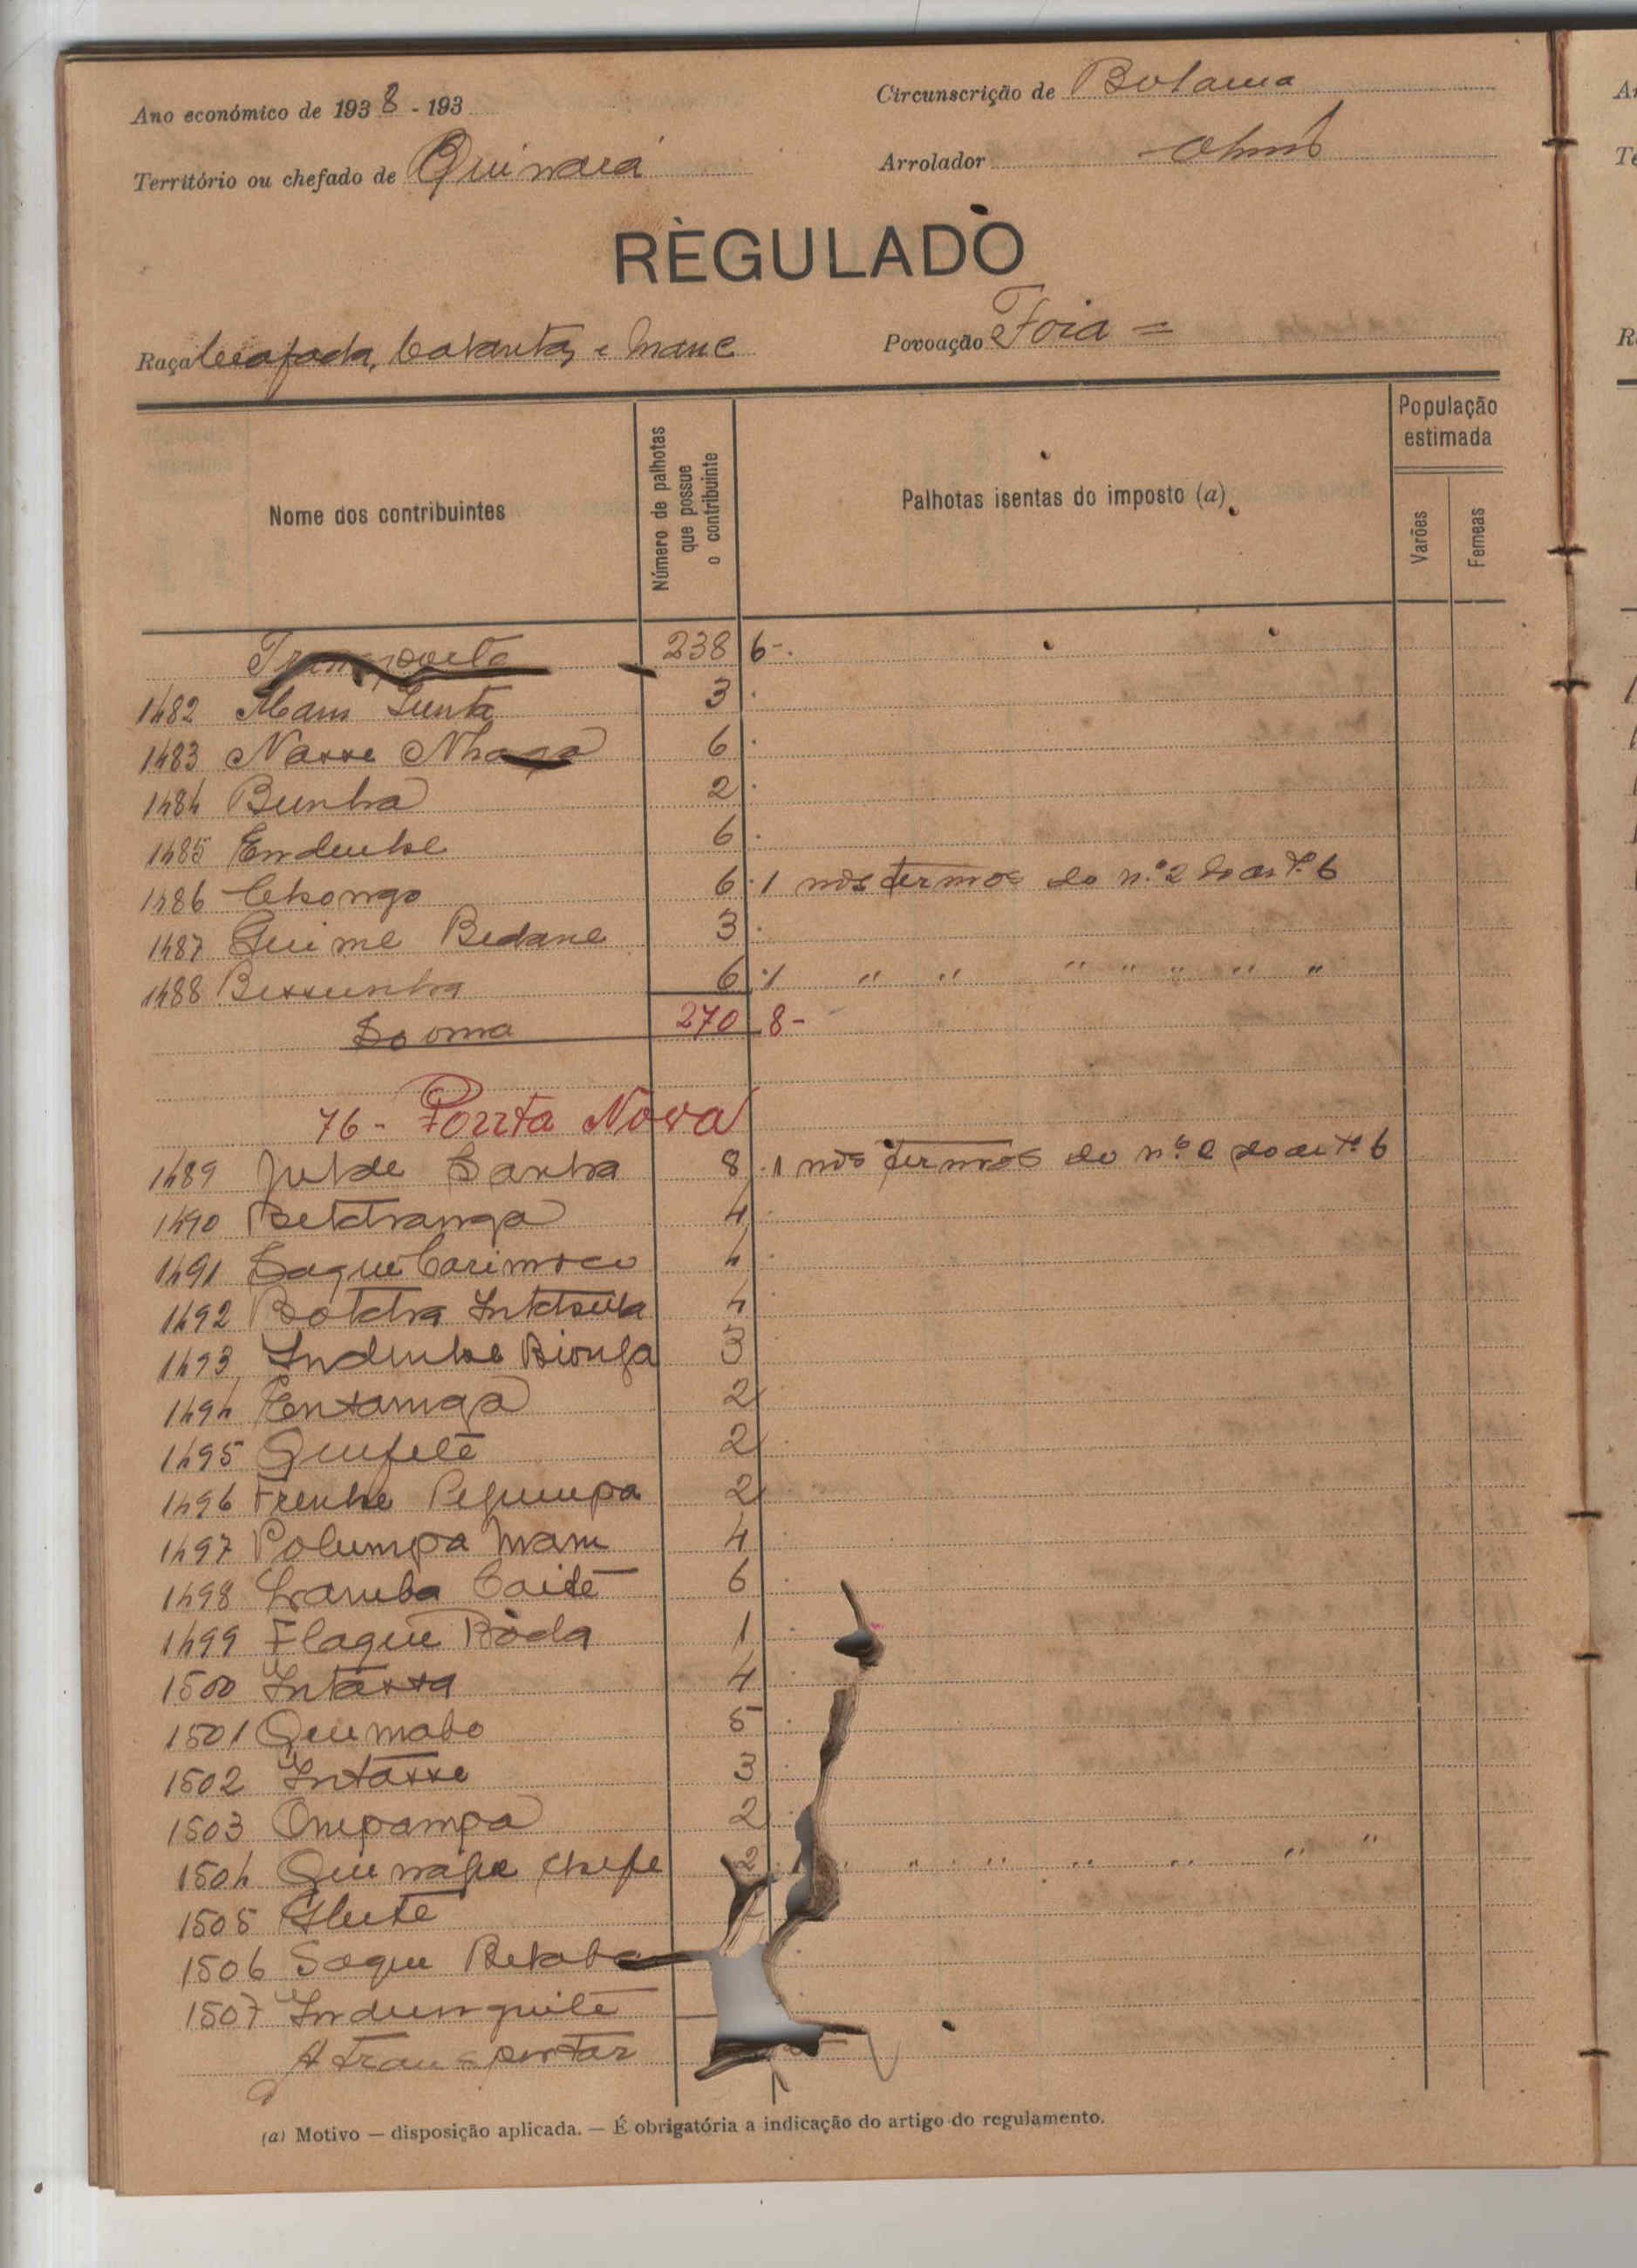 Ano económico de 1938 - 193
Circunscrição de Bolama
Território ou chefado de Quinará
Arrolador
REGULADO
Raça Beafada, Balanta, e Mané
Povoação Foia =
Nome dos contribuintes
Número de palhotas que possue o contribuinte
Palhotas isentas do imposto (a)
População estimada
Varões
Femeas
Transporte 238 6-.
1482 Mam Sunta 3
1483 Nasse Nhaga 6
1484 Bunha 2
1485 Endenhe 6
1486 Chongo 6 1 nos termos do n.º 2 do art.º 6
1487 Guime Bedane 3
1488 Bissunha 6 1 " " " " " " "
Sooma 270 8-
76 - Ponta Nova
1489 Sanha 8 1 nos termos do n.º 2 do art.º 6
1490 4
1491 Saque 4
1492 4
1493 Indenhe Bionfa 3
1494 Entanga 2
1495 Quifeté 2
1496 Frenhe 2
1497 Polumpa Mam 4
1498 Caité 6
1499 Flaque Bòda 1
1500 Intassa 4
1501 Quimabo 5
1502 Intasse 3
1503 Onepampa 2
1504 chefe 2 " " " " " "
1505
1506 Soque
1507 Indunquité
A transportar
(a) Motivo — disposição aplicada. — É obrigatória a indicação do artigo do regulamento.